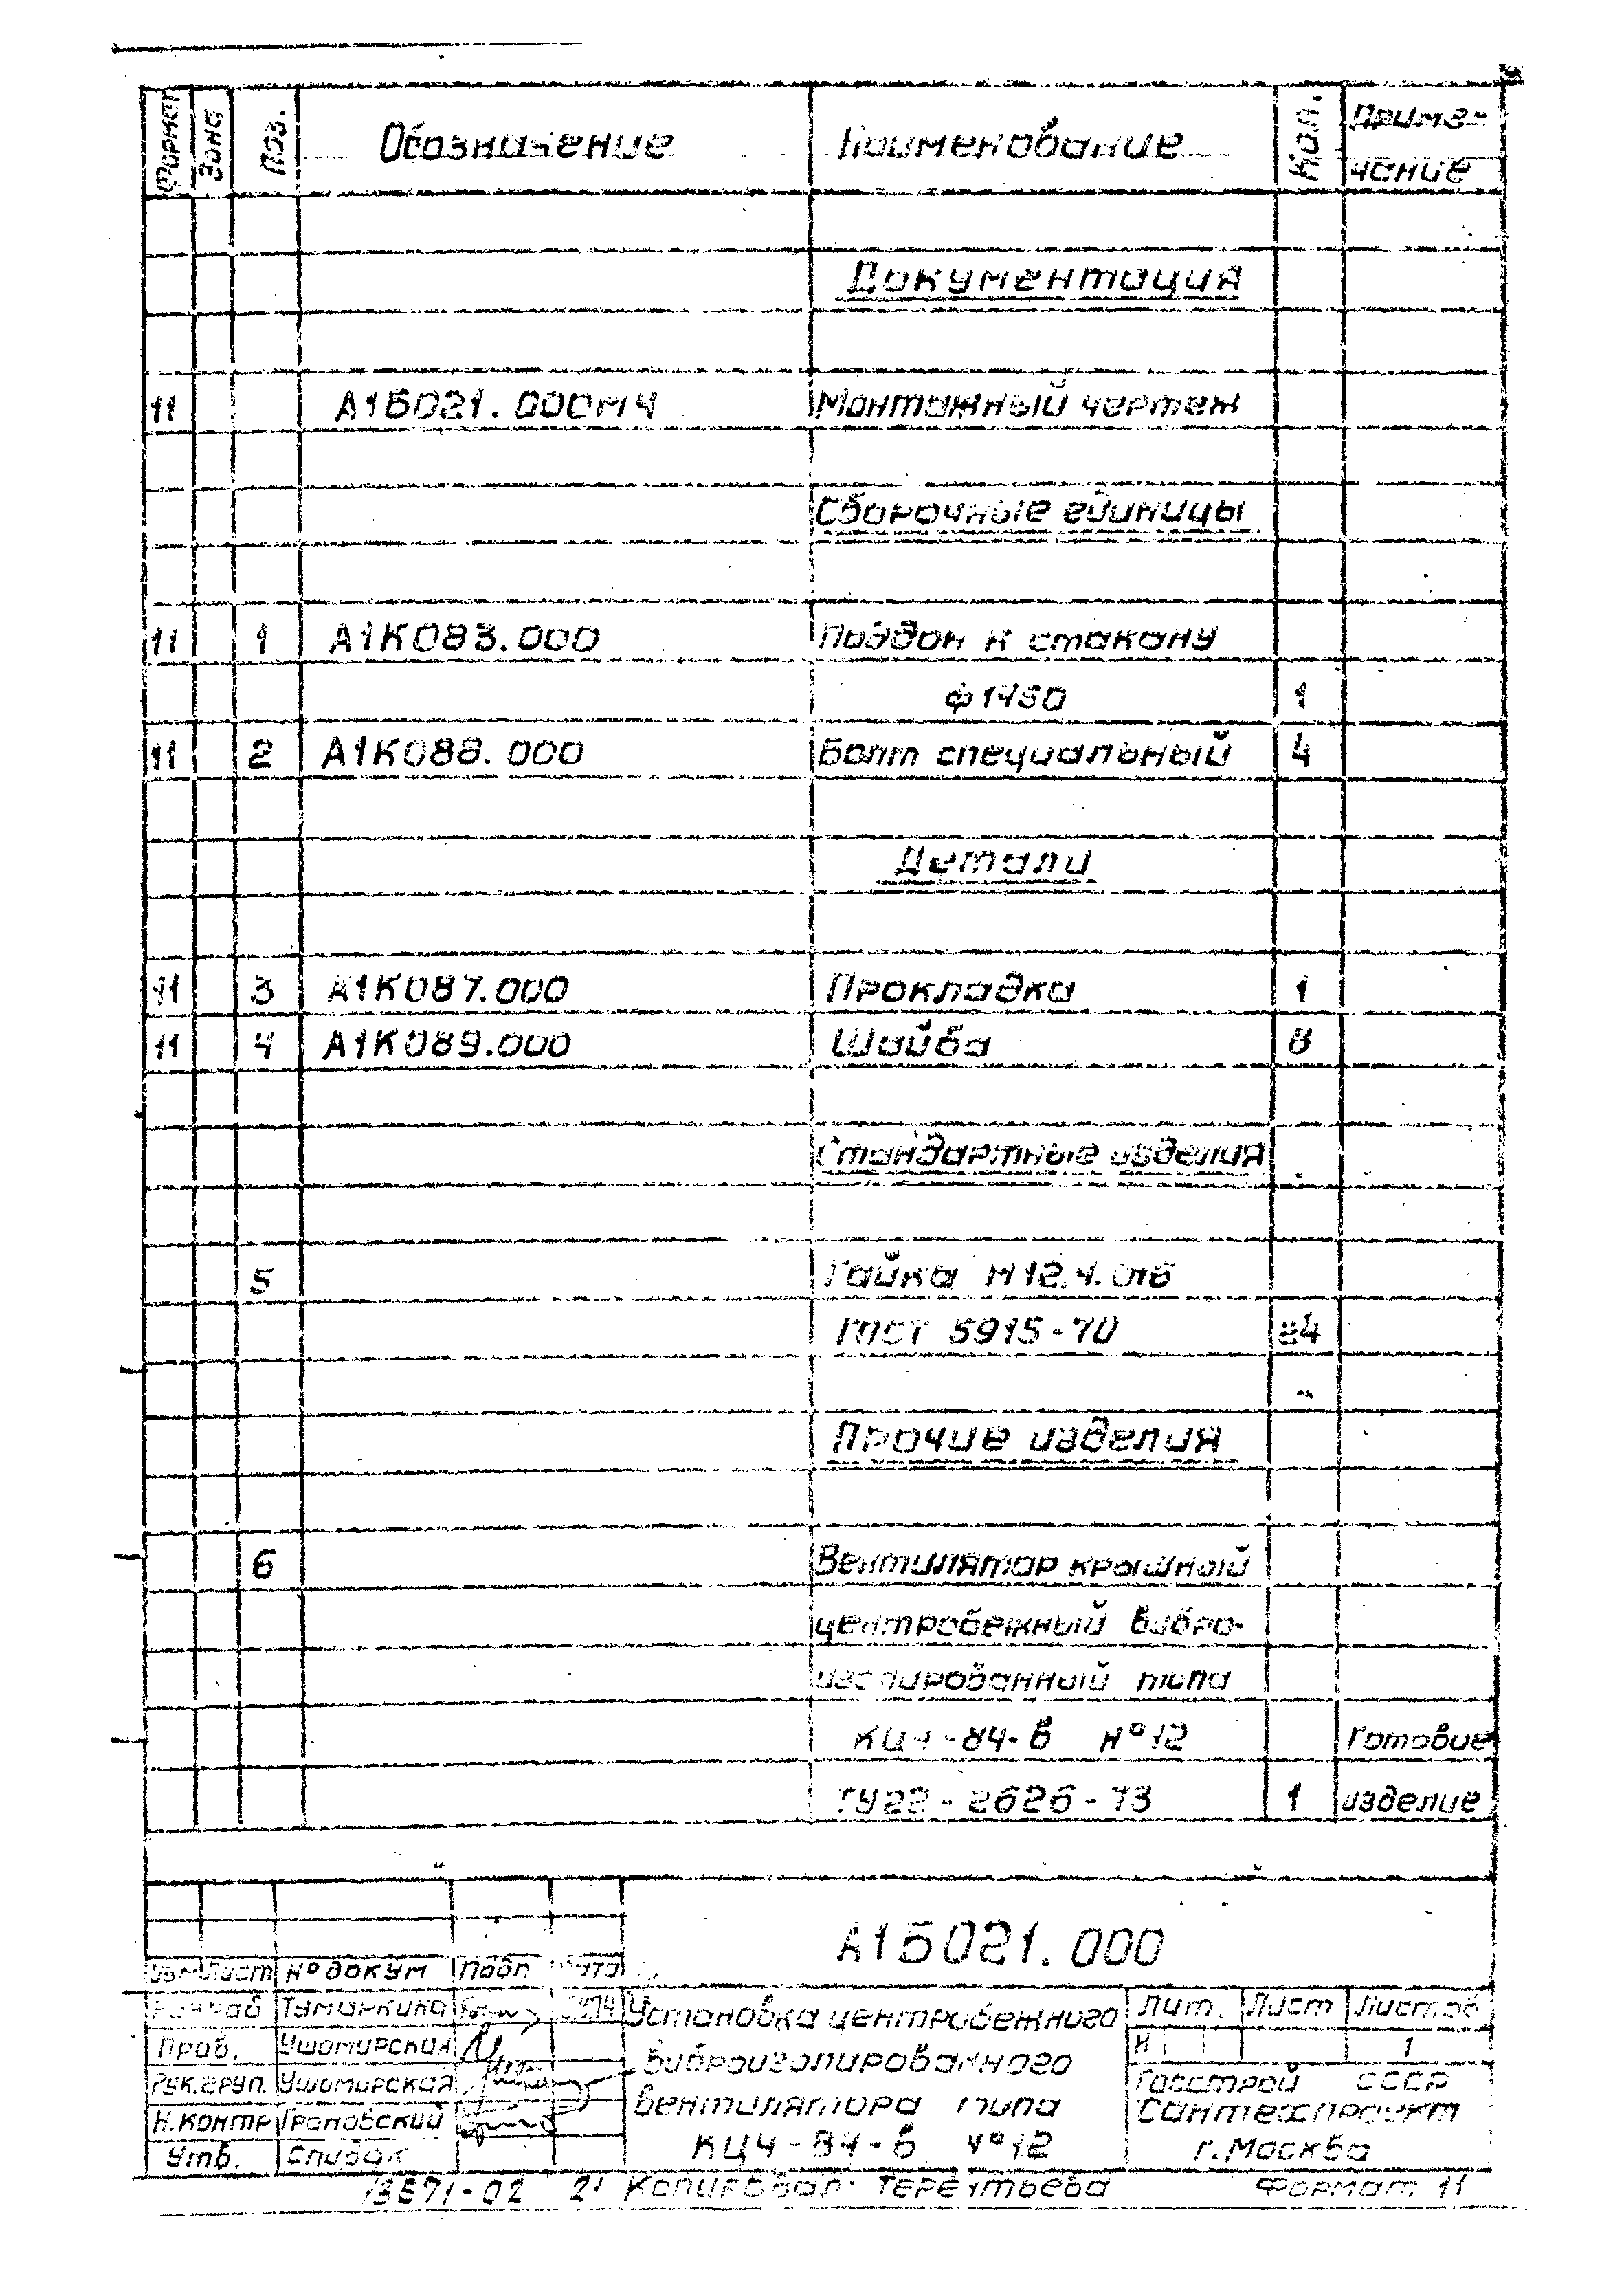 Формат Зона Поз. Обозначение Наименование Кол. Приме-
чание
Документация
11 А1Б021.000МЧ Монтажный чертеж
Сборочные единицы
11 1 А1К083.000 Поддон к стакану
ф1450 1
11 2 А1К088.000 Болт специальный 4
Детали
11 3 А1К087.000 Прокладка 1
11 4 А1К089.000 Шайба 8
Стандартные изделия
5 Гайка М12.4.016
ГОСТ 5915-70 24
Прочие изделия
6 Вентилятор крышный
центробежный вибро-
изолированный типа
КЦ4-84-в №12 Готовое
ТУ22-2626-73 1 изделие
А1Б021.000
Изм Лист № докум Подп Дата
Разраб Тумаркина
Пров. Ушомирская
Рук.груп. Ушомирская
Н.контр Грановский
Утв. Спивак
Установка центробежного
виброизолированного
вентилятора типа
КЦ4-84-в №12
Лит. Лист Листов
И 1
Госстрой СССР
Сантехпроект
г.Москва
13871-02 21 Копировал: Терентьева Формат 11